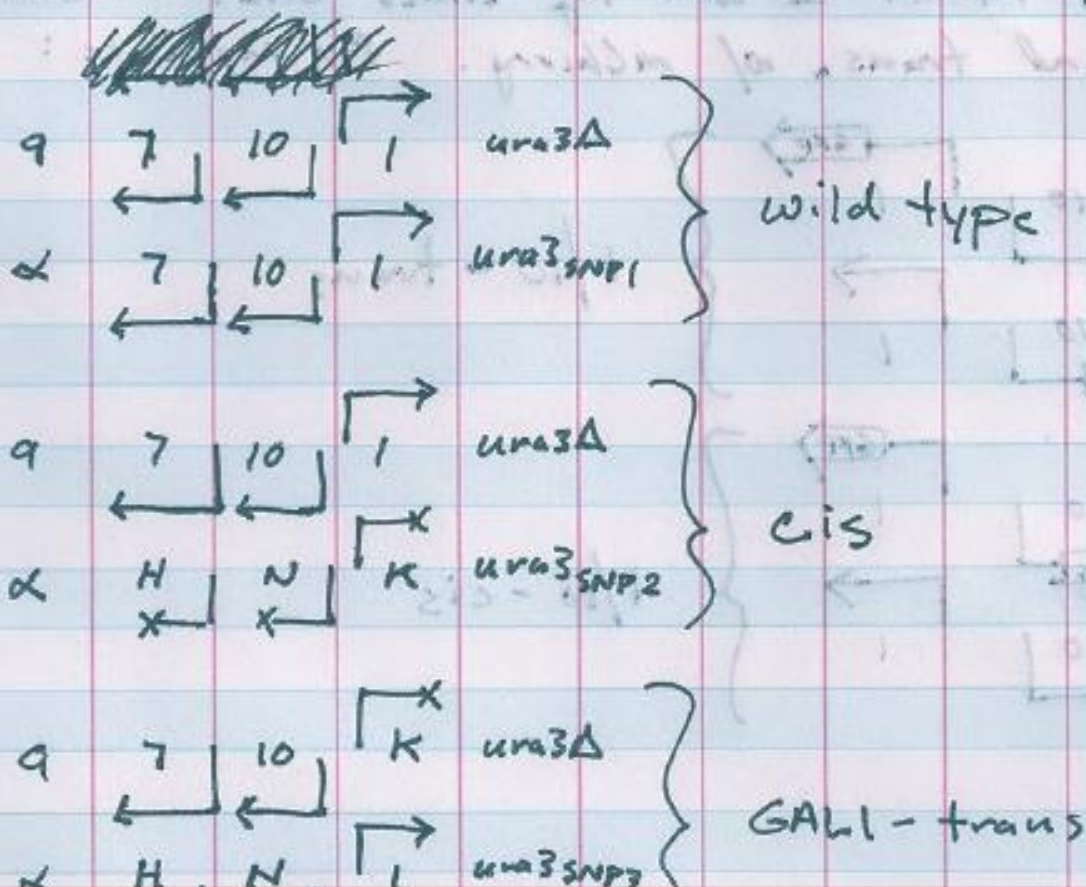 a 7 10 1 ura3Δ
α 7 10 1 ura3SNP1
wild type
a 7 10 1 ura3Δ
α H N K ura3SNP2
cis
a 7 10 K ura3Δ
α H N 1 ura3SNP3
GAL1-trans